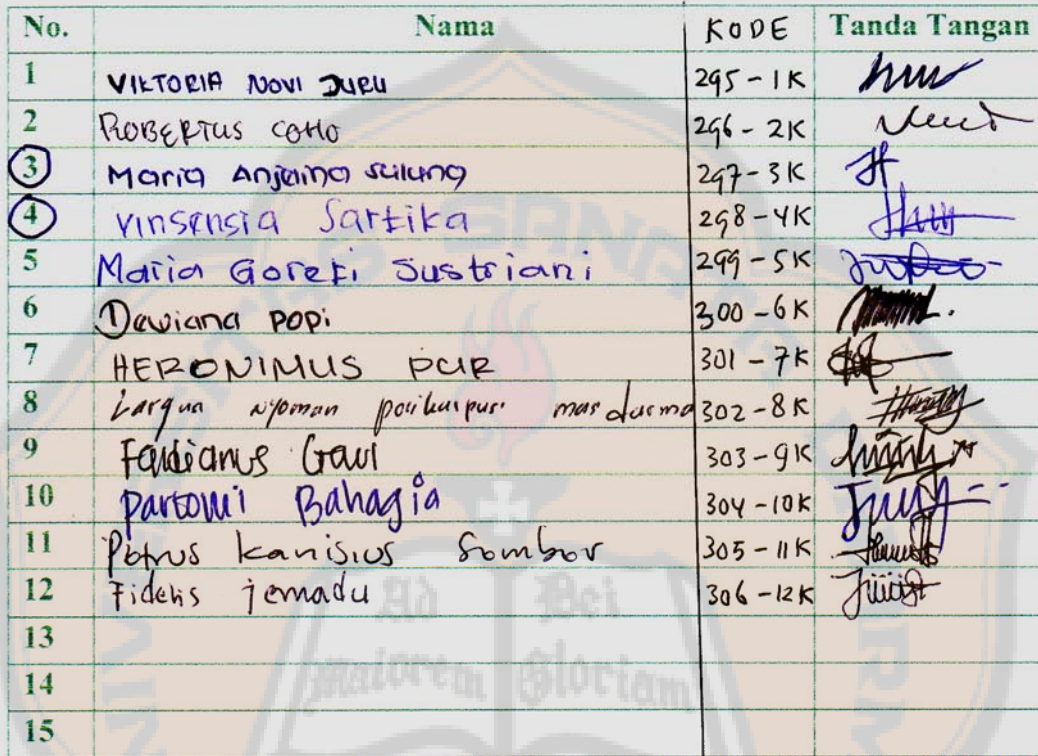 No. Nama KODE Tanda Tangan
1 VIKTORIA NOVI JURU 295-1K
2 ROBERTUS COHO 296-2K
3 Maria Anjaina suluno 297-3K
4 vinsensia Sartika 298-4K
5 Maria Goreti Sustriani 299-5K
6 Dewiana popi 300-6K
7 HERONIMUS PCIR 301-7K
8 nyoman mas darma 302-8K
9 Gaul 303-9K
10 partowi Bahagia 304-10K
11 Petrus kanisius Sombor 305-11K
12 Fidelis jemadu 306-12K
13
14
15
SANATA
Ad Dei
Maiorem Gloriam